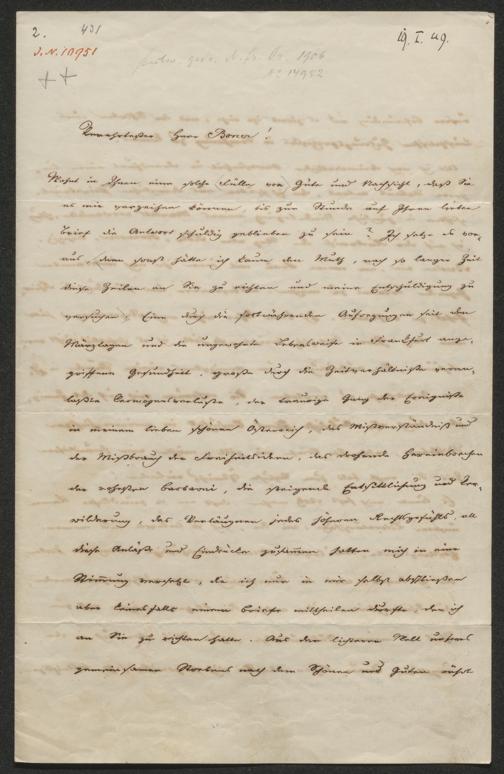 2.
431
19. I. 49.
J.N. 10951
1906
No 14952
Verehrtester Herr Boner!
Wohnt in Ihnen eine solche Fülle von Güte und Nachsicht, daß Sie
es mir verzeihen können, bis zur Stunde auf Ihren lieben
Brief die Antwort schuldig geblieben zu sein? Ich setze es vor-
aus, denn sonst hätte ich kaum den Muth, nach so langer Zeit
diese Zeilen an Sie zu richten und meine Entschuldigung zu
versuchen. Eine durch die fortwährenden Aufregungen seit den
Märztagen und die ungewohnte Lebensweise in Frankfurt ange-
griffene Gesundheit, große durch die Zeitverhältnisse veran-
laßte Vermögensverluste, der traurige Gang der Ereignisse
in meinem lieben schönen Österreich, das Mißverständniß und
der Mißbrauch der Freiheitsideen, das drohende Hereinbrechen
der rohesten Barbarei, die steigende Entsittlichung und Ver-
wilderung, das Verläugnen jedes höheren Rechtsgefühls, all
diese Anläße und Eindrücke zusammen hatten mich in eine
Stimmung versetzt, die ich nur in mir selbst abschließen
aber keinesfalls einem Briefe mittheilen durfte, den ich
an Sie zu richten hatte. Aus der lichteren Welt unseres
gemeinsamen Strebens nach dem Schönen und Guten